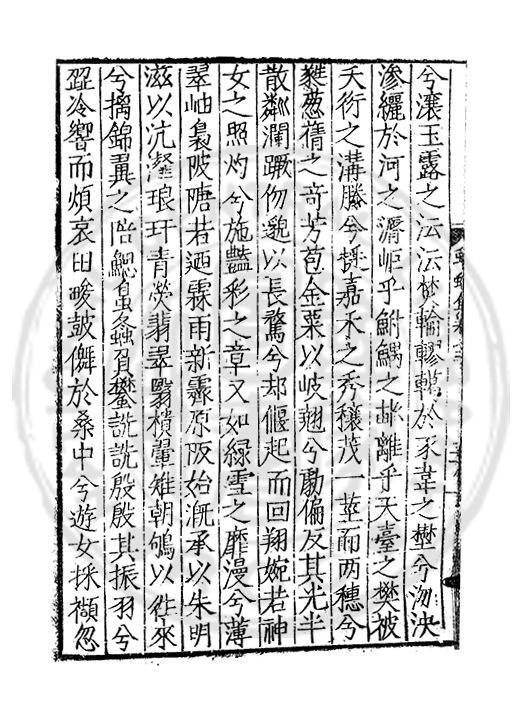 兮瀼玉露之沄沄梵輪轇轕於豕韋之墅兮沕泱
滲纚於河之湑岠乎鮒鰅之　離乎天臺之樊被
天衍之溝塍兮挺嘉禾之秀穰茂一莖而兩穗兮
　葱蒨之奇芳苞金粟以岐翹兮勵偏反其光半
散粼瀾蹶伆邈以長騖兮却偃起而回翔婉若神
女之照灼兮施豔彩之章又如綠雪之靡漫兮薄
翠岫裊陂陼若迺霖雨新霽原阪始溉承以朱明
滋以沆瀣琅玕青熒翡翠翳橨翬雉朝鳴以雊來
兮摛錦翼之皓　　螽蝨負蠜詵詵殷殷其振羽兮
歰冷響而煩哀田畯鼓儛於桑中兮遊女採襭忽